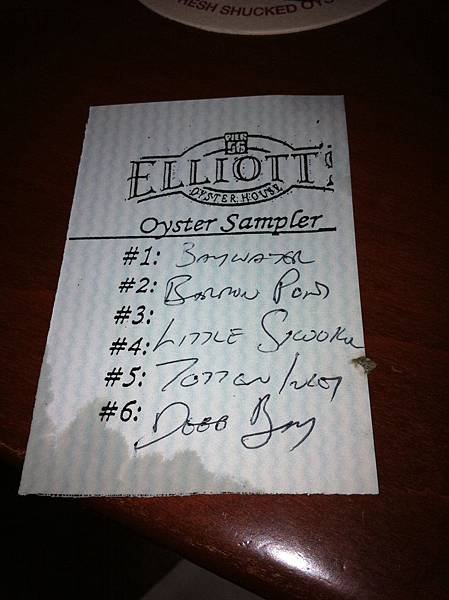 FRESH SHUCKED OYS
PIER
56
ELLIOTT'S
OYSTER HOUSE
Oyster Sampler
#1: BAYWATER
#2: BARRON POINT
#3:
#4: LITTLE SKOOKUM
#5: TOTTEN INLET
#6: DEEP BAY